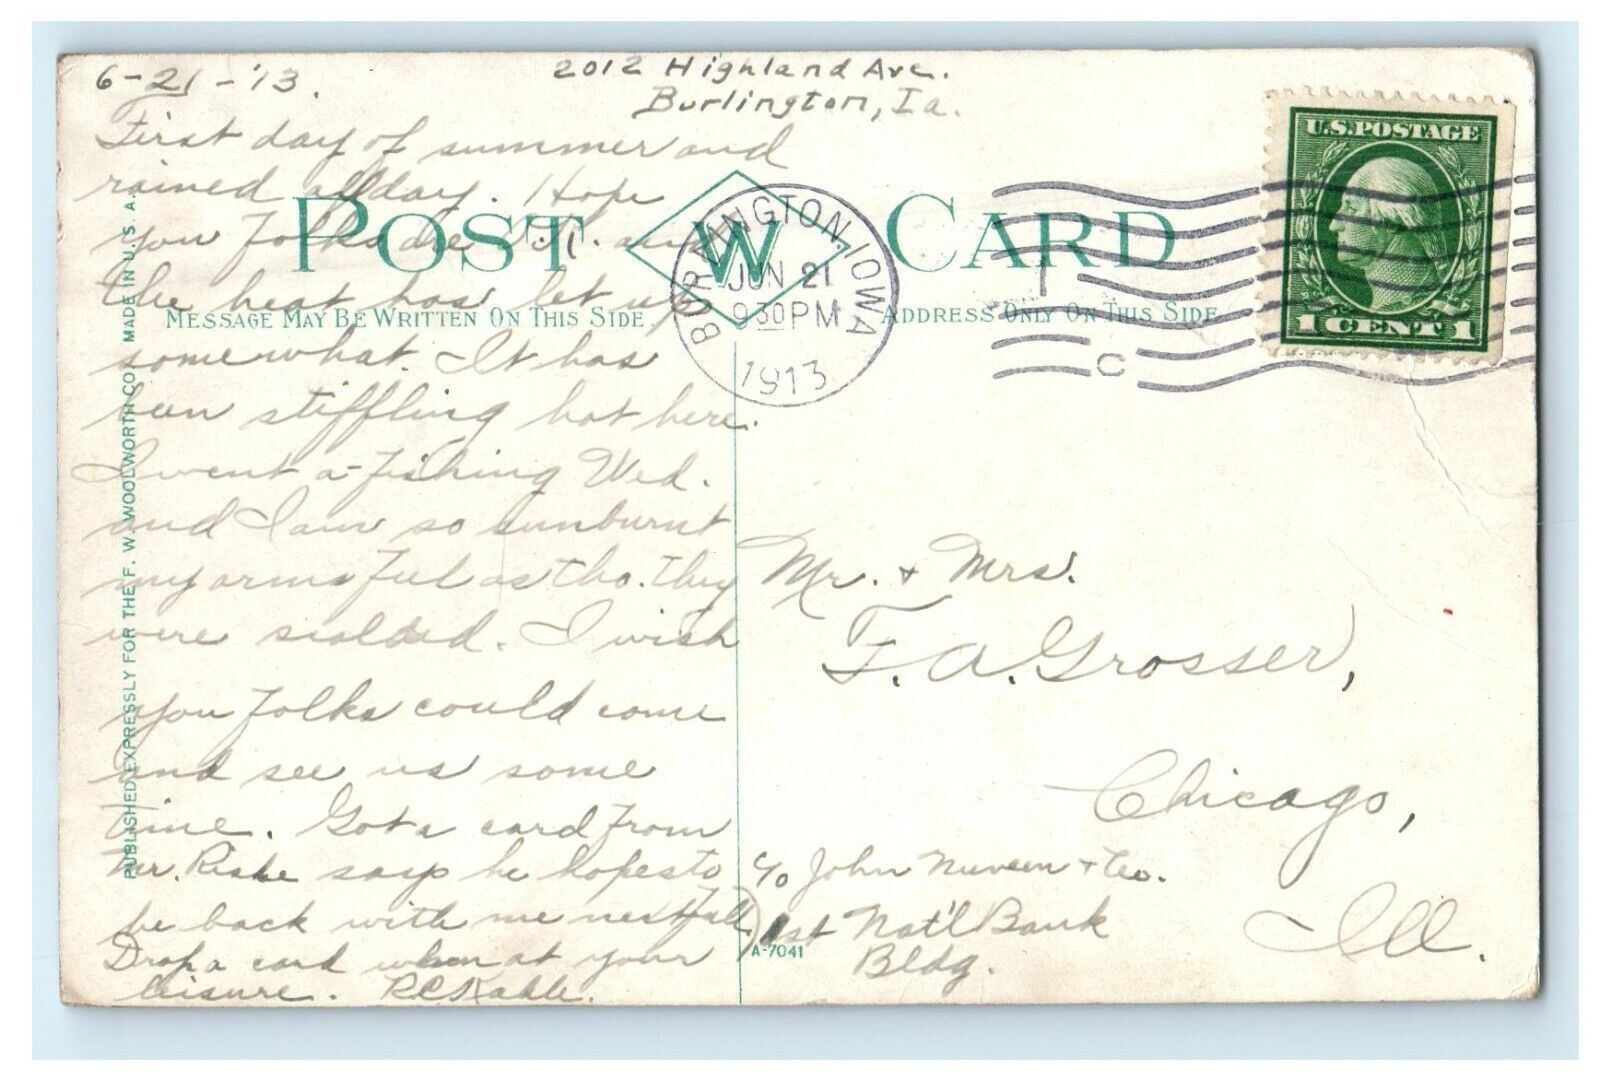 6-21-'13.
2012 Highland Ave.
Burlington, Ia.
First day of summer and
rained all day. Hope
you folks are O.K. and
the heat has let up
somewhat. It has
been stiffling hot here.
I went a-fishing Wed.
and I am so sunburnt
my arms feel as tho. they
were scalded. I wish
you folks could come
and see us some
time. Got a card from
Mr. says he hopes to
be back with me next Fall
Drop a card when at your
leisure.
POST W CARD
MESSAGE MAY BE WRITTEN ON THIS SIDE
ADDRESS ONLY ON THIS SIDE
PUBLISHED EXPRESSLY FOR THE F. W. WOOLWORTH CO. MADE IN U. S. A.
BURLINGTON, IOWA
JUN 21
9 30 PM
1913
C
U.S. POSTAGE
1 CENT 1
Mr. + Mrs.
F. A. Grosser,
Chicago,
Ill.
c/o John Nuveen + Co.
1st Nat'l Bank
Bldg.
A-7041